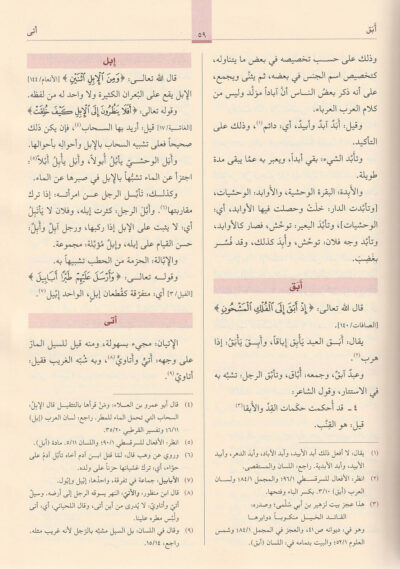 أَبَقَ
٥٩
أتى
وذلك على حسب تخصيصه في بعض ما يتناوله،
كتخصيص اسم الجنس في بعضه، ثم يثنّى ويجمع،
على أنه ذكر بعض الناس أنّ آباداً مولّد وليس من
كلام العرب العرباء.
وقيل: أبَدٌ آبدٌ وأبيدٌ، أي: دائم(١)، وذلك على
التأكيد.
وتأبّد الشيء: بقي أبداً، ويعبر به عمّا يبقى مدة
طويلة.
والآبدة: البقرة الوحشية، والأوابد: الوحشيات،
[وتأبّدت الدار: خلَتْ وحصلت فيها الأوابد، أي:
الوحشيات]، وتأبّد البعير: توحّش، فصار كالأوابد،
وتأبّد وجه فلان: توحّش، وأَبِدَ كذلك، وقد فُسّر
بغَضِبَ.
أبق
قال الله تعالى: ﴿ إِذْ أَبَقَ إِلَى الْفُلْكِ الْمَشْحُونِ ﴾
[الصافات/ ١٤٠].
يقال: أَبَقَ العبد يَأْبِقُ إِباقاً، وأَبِقَ يَأْبَقُ: إذا
هرب(٢).
وعبدٌ آبقٌ، وجمعه: أُبّاق، وتأبّق الرجل: تشبّه به
في الاستتار، وقول الشاعر:
٤ ـ قد أحكمت حكمات القِدّ والأبقا(٣)
قيل: هو القِنّب.
(١) يقال: لا أفعل ذلك أبد الأبيد، وأبد الآباد، وأبد الدهر، وأبيد
الأبيد، وأبد الأبدية. راجع: اللسان والمستقصى.
(٢) انظر: الأفعال للسرقسطي ٩٦/١؛ والمجمل ٨٤/١؛ ولسان
العرب (أبق) ٣/١٠. بكسر الباء وفتحها.
(٣) هذا عجز بيت لزهير بن أبي سُلْمى؛ وصدره:
القائد الخيل منكوباً دوابرها
إبل
قال الله تعالى: ﴿ وَمِنَ الْإِبِلِ اثْنَيْنِ ﴾ [الأنعام/ ١٤٤]
الإبل يقع على البُعران الكثيرة ولا واحد له من لفظه.
وقوله تعالى: ﴿ أَفَلَا يَنظُرُونَ إِلَى الْإِبِلِ كَيْفَ خُلِقَتْ ﴾
[الغاشية/ ١٧] قيل: أريد بها السحاب(٤)، فإن يكن ذلك
صحيحاً فعلى تشبيه السحاب بالإبل وأحواله بأحوالها.
وأَبَل الوحشيّ يأبُل أُبولاً، وأبل يأبل أَبْلاً(٥):
اجتزأ عن الماء تشبُّهاً بالإبل في صبرها عن الماء.
وكذلك: تأبّل الرجل عن امرأته: إذا ترك
مقاربتها(٦). وأَبَّل الرجل: كثرت إبله، وفلان لا يأتبل
أي: لا يثبت على الإبل إذا ركبها، ورجل آبلٌ وأَبِلٌ:
حسن القيام على إبله، وإبلٌ مؤبّلة: مجموعة.
والإبّالة: الحزمة من الحطب تشبيهاً به.
وقوله تعالى: ﴿ وَأَرْسَلَ عَلَيْهِمْ طَيْرًا أَبَابِيلَ ﴾
[الفيل/ ٣] أي: متفرّقة كقطعان إبلٍ، الواحد إبّيل(٧).
أتى
الإتيان: مجيء بسهولة، ومنه قيل للسيل المارّ
على وجهه: أَتيّ وأَتاويّ(٨)، وبه شُبّه الغريب فقيل:
أتاويّ(٩).
(٤) قال أبو عمرو بن العلاء: ومَنْ قرأها بالتثقيل قال الإبلّ:
السحاب التي تحمل الماء للمطر. راجع: لسان العرب (إبل)
(٥) انظر: الأفعال للسرقسطي
(٦) وروي عن وهب قال: لمّا قتل ابن آدم أخاه تأبّل آدمُ على
حوّاء، أي: ترك غشيانها حزناً على ولده.
(٧) الأبابيل: جماعة في تفرقة، واحدها: إبّيل وإبّول.
(٨) قال ابن منظور: والأتيّ: النهر يسوقه الرجل إلى أرضه. وسيلٌ
أتيّ وأتاويّ: لا يُدرى من أين أتى، وقال اللحياني: أي، أتى
ولُبّس مطره علينا.
(٩) وقال في اللسان: بل السيل مشبّه بالرّجل لأنه غريب مثله.